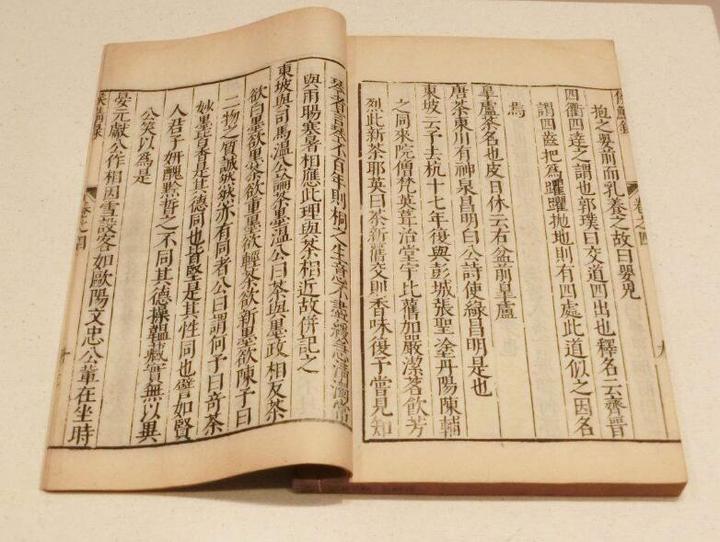 侯鯖錄 卷之四 九
抱之嬰前而乳養之故曰嬰兒
四衢四逵之謂也郭璞曰交道四出也釋名云齊晉
謂四齒杷為欋欋杷地則有四處此道似之因名
焉
皐盧茶名也皮日休云右盆前皐盧
唐茶東川有神泉昌明白公詩使綠昌明是也
東坡云予去杭十七年復與彭城張聖塗丹陽陳輔
之同來院僧梵英葺治堂宇比舊加嚴潔茗飲芳
烈此新茶耶英曰茶新舊交則香味復予嘗見知
琴者言琴不百年則桐之生意不盡緩急清濁常
與雨暘寒暑相應此理與茶相近故併記之
東坡與司馬溫公論茶墨溫公曰茶與墨政相反茶
欲白墨欲黑茶欲重墨欲輕茶欲新墨欲陳予曰
二物之質誠然然亦有同者公曰謂何予曰奇茶
妙墨皆香是其德同也皆堅是其性同也譬如賢
人君子妍醜黔晳之不同其德操韞藏實無以異
公笑以為是
晏元獻公作相因雪設客如歐陽文忠公輩在坐時
侯鯖錄 卷之四 十